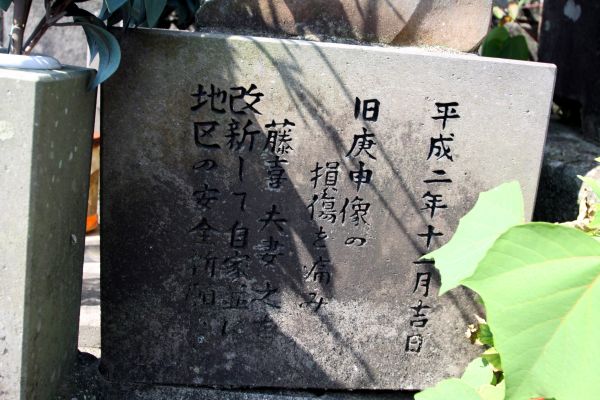 平成二年十一月吉日
旧庚申像の
損傷を痛み
藤喜夫妻之を
改新して自家並に
地区の安全祈